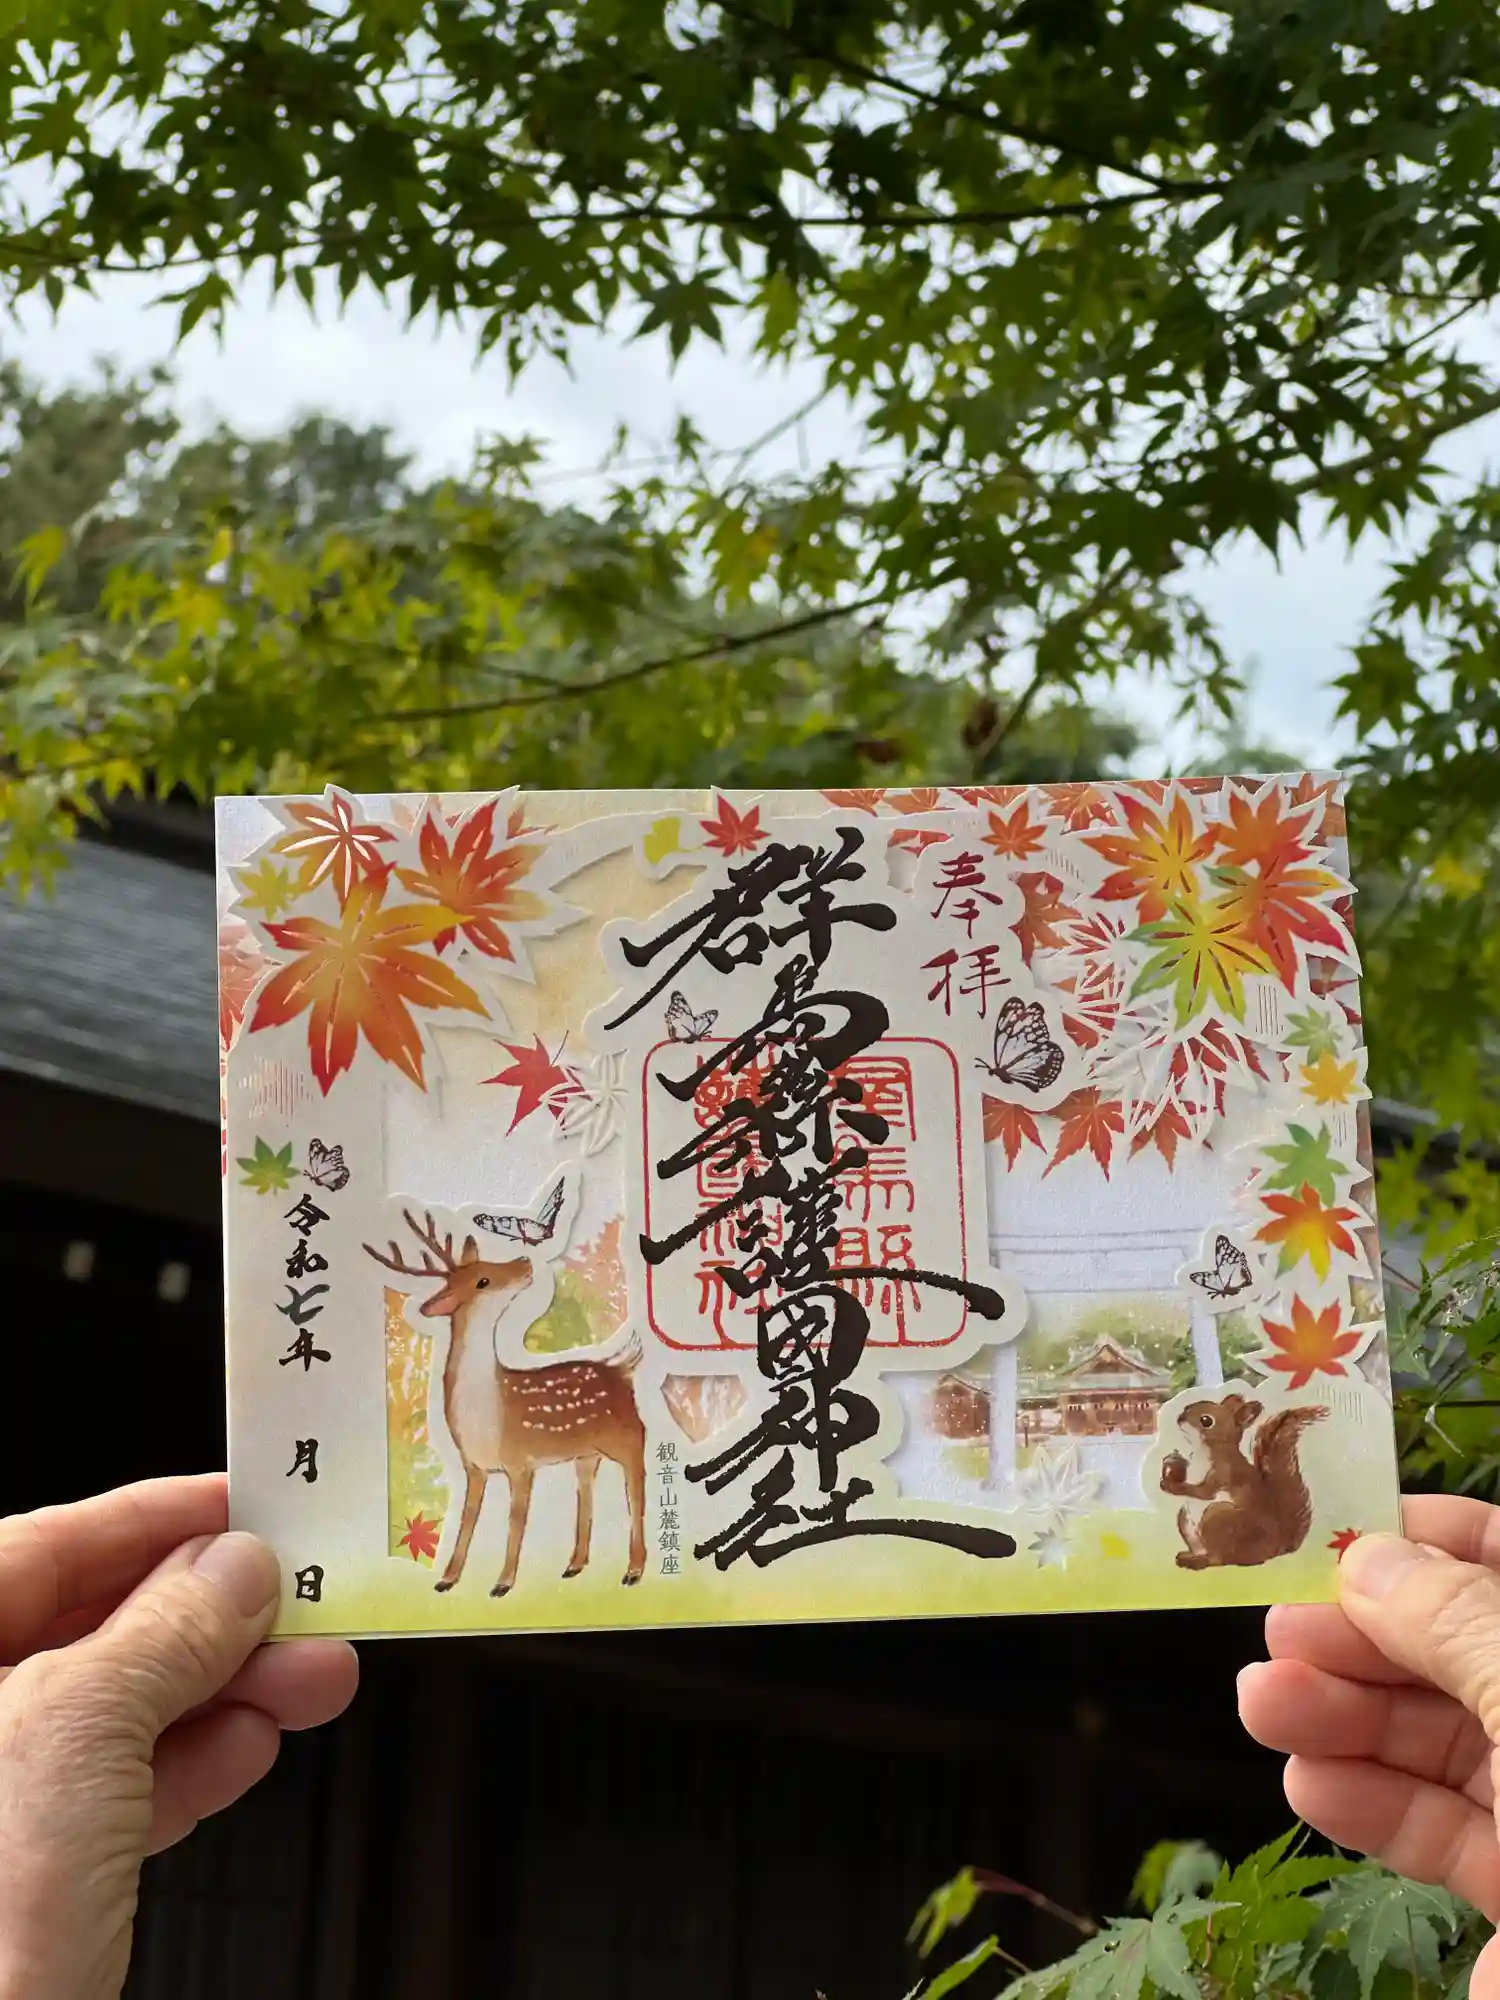 奉拝
群馬縣護國神社
群馬縣
護國神社
観音山麓鎮座
令和七年 月 日